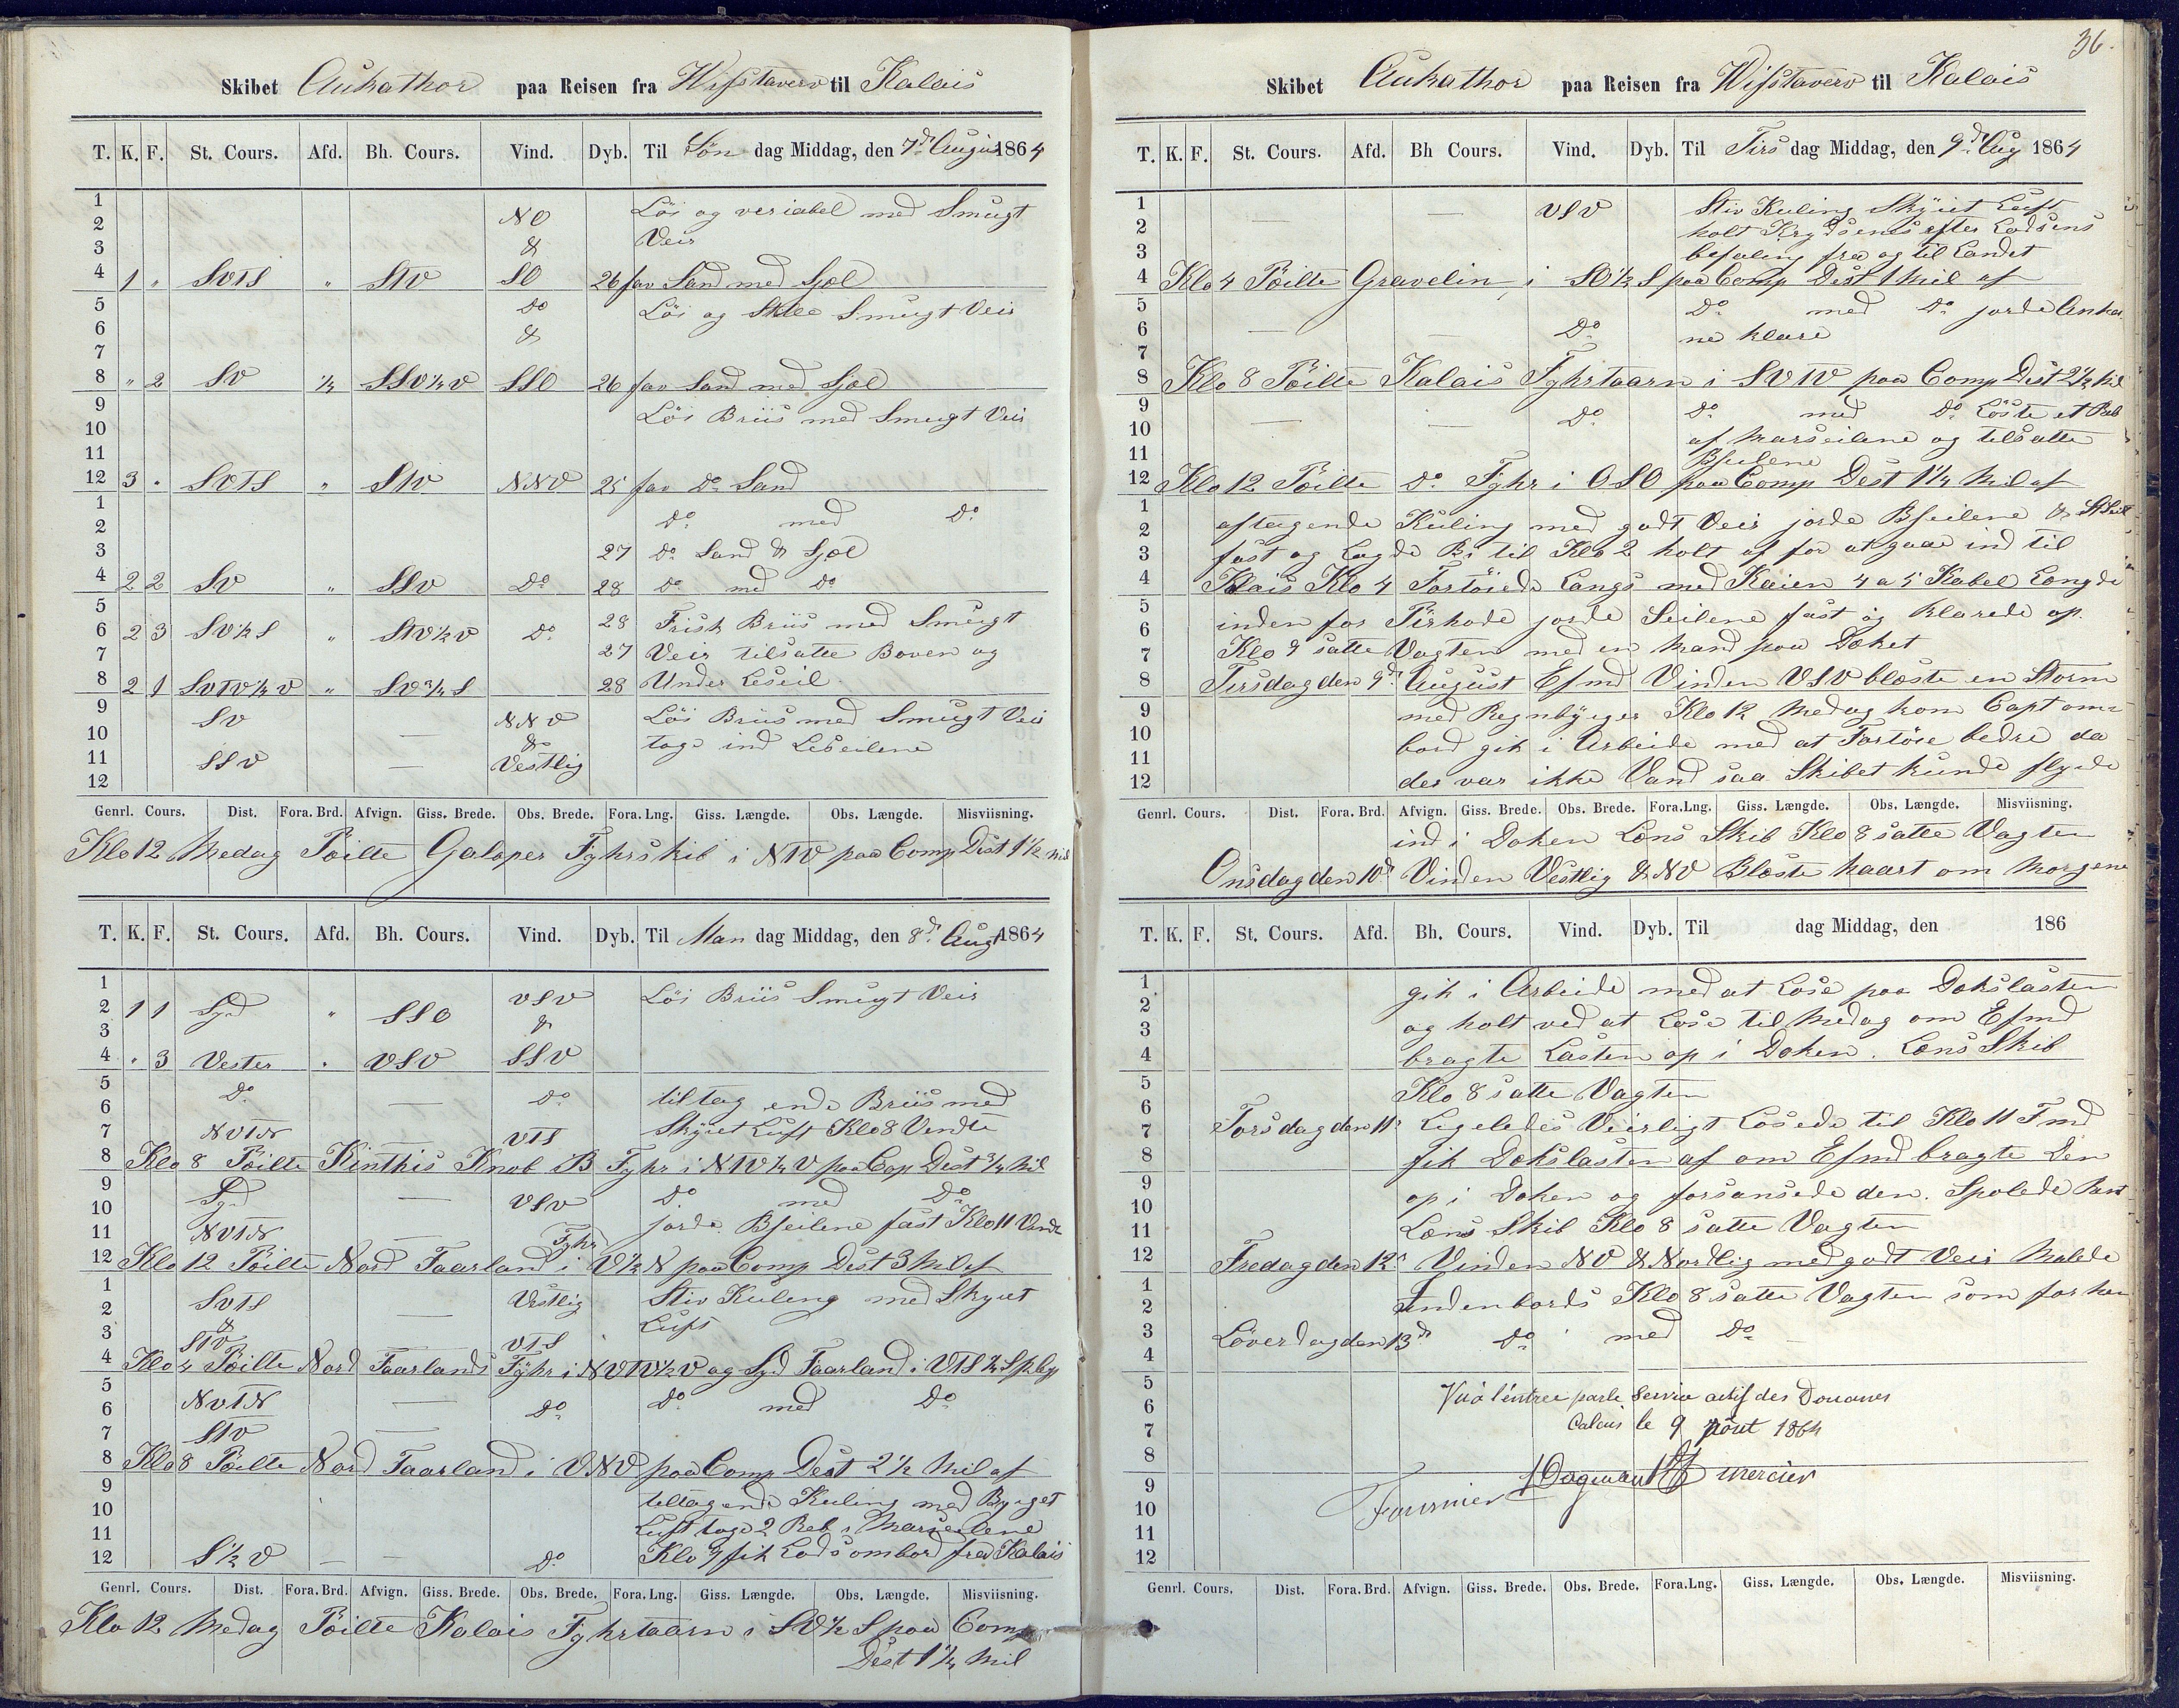 Skibet Aukathor paa Reisen fra Wifstaverv til Kalais
T. K. F. St. Cours. Afd. Bh. Cours. Vind. Dyb. Til Søn dag Middag, den 7d August 1864
1 Löi og veriabel med Smugt
2 NO Veir
3 &
4 1 " SVTS " STV SO 26 fav Sand med Sjæl
5 Do Löi og Stille Smugt Veir
6 &
7
8 " 2 SV 1/4 SSV1/4V SSO 26 fav Sand med Sjæl
9 Löi Briis med Smugt Veir
10
11
12 3 " SVTS " STV NNV 25 fav Do Sand
1 Do med Do
2
3 27 Do Sand & Sjæl
4 2 2 SV " SSV Do 28 Do med Do
5 28 Frisk Briis med Smugt
6 2 3 SV1/2S " STV1/2V Do
7 27 Veir tilsatte Boven og
8 2 1 SVTV1/4V " SV3/4S 28 Under Leseil
9 SV — NNV Löi Briis med Smugt Veir
10 & toge ind Leseilene
11 SSV — Vestlig
12
Genrl. Cours. Dist. Fora. Brd. Afvign. Giss. Brede. Obs. Brede. Fora. Lng. Giss. Længde. Obs. Længde. Misviisning.
Klo 12 Medag Pöilte Galoper Fyhrskib i NTV paa Comp Dist 1 1/2 Mil
T. K. F. St. Cours. Afd. Bh. Cours. Vind. Dyb. Til Man dag Middag, den 8d Augt 1864
1
2 1 1 Syd " SSO VSV Löi Briis Smugt Veir
3 &
4 " 3 Vester " VSV SSV
5 Do — Do tiltagende Briis med
6
7 NVTN — VTS Skyet Luft Klo 8 Vendte
8 Klo 8 Pöilte Kinthis Knob B Fyhr i NTV1/4V paa Cop Dest 3/4 Mil
9 Syd — VSV Do med Do
10
11 NVTN — Fyhr jorde Bseilene fast Klo 11 Vendte
12 Klo 12 Pöilte Nord Faarland i V1/2N paa Comp Dest 3 Mil af
1 SVTS — Vestlig Stiv Kuling med Skyet
2 & Luft
3 STV VTS
4 Klo 4 Pöilte Nord Faarlands Fyhr i NVTV1/2V og Syd Faarland i VTS 1/4 S p Cop
5 NVTN — Do Do med Do
6
7 STV —
8 Klo 8 Pöilte Nord Faarland i VNV paa Comp Dest 2 1/2 Mil af
9 tiltagende Kuling med Byiget
10 Luft toge 2 Reb i Marseilene
11
12 S1/2V — — Do Klo 9 fik Lods ombord fra Kalais
Genrl. Cours. Dist. Fora. Brd. Afvign. Giss. Brede. Obs. Brede. Fora. Lng. Giss. Længde. Obs. Længde. Misviisning.
Klo 12 Medag Pöilte Kalais Fyhrtaarn i SV1/2S paa Comp
Dest 1 1/4 Mil
36.
Skibet Aukathor paa Reisen fra Wifstaverv til Kalais
T. K. F. St. Cours. Afd. Bh Cours. Vind. Dyb. Til Tirs dag Middag, den 9d Aug 1864
1 — — VSV Stiv Kuling Skyiet Luft
2 holt Krydsenes efter Lodsens
3 befaling fra og til Landet
4 Klo 4 Pöilte Gravelin, i SO1/2S paa Comp Dest 1 Mil af
5 Do med Do jorde Anker
6 — — Do ne klare
7
8 Klo 8 Pöilte Kalais Fyhrtaarn i SVTV paa Comp Dist 2 1/2 Mil
9 — — Do Do med Do Löste et Reb
10 af Marseilene og tilsatte
11 Bseilene
12 Klo 12 Pöilte Do Fyhr i OSO paa Comp Dest 1 1/4 Mil af
1 aftagende Kuling med godt Veir jorde Bseilene & StSeil
2
3 fast og Lagde Bi til Klo 2 holt af for at gaae ind til
4 Klais Klo 4 Fortöiede Langs med Kaien 4 a 5 Kabel Længde
5 inden for Pirhode jorde Seilene fast og klarede op.
6
7 Klo 9 satte Vagten med en Mand paa Dæket
8 Tirsdag den 9d August Efmd Vinden VSV blæste en Storm
9 med Regnbyiger Klo 12 Medag kom Capt om
10 bord gik i Arbeide med at Fortöie bedre da
11 der var ikke Vand saa Skibet kunde flyde
12
Genrl. Cours. Dist. Fora. Brd. Afvign. Giss. Brede. Obs. Brede. Fora.Lng. Giss. Længde. Obs. Længde. Misviisning.
ind i Doken Læns Skib Klo 8 satte Vagten
Onsdag den 10d Vinden Vestlig & NV Blæste haart om Morgene
T. K. F. St. Cours. Afd. Bh. Cours. Vind. Dyb. Til dag Middag, den 186
1 gik i Arbeide med at Lose paa Dækslasten
2
3 og holt ved at Lose til Medag om Efmd
4 bragte Lasten op i Doken. Læns Skib
5 Klo 8 satte Vagten
6
7 Torsdag den 11d Ligeledes Veirligt Losede til Klo 11 Fmd
8 fik Dækslasten af om Efmd bragte den
9
10 op i Doken og forsansede den. Spolede
11 Læns Skib Klo 8 satte Vagten
12 Fredag den 12d Vinden NV & Nordlig med godt Veir Malede
1 indenbords Klo 8 satte Vagten som forhen
2
3 Löverdag den 13d Do med Do
4
5 Vu à l'entrée par le Service actif des Douanes
6 Calais le 9 août 1864
7
8
9 Fournier Dagneaux Mercier
10
11
12
Genrl. Cours. Dist. Fora. Brd. Afvign. Giss. Brede. Obs. Brede. Fora.Lng. Giss. Længde. Obs. Længde. Misviisning.